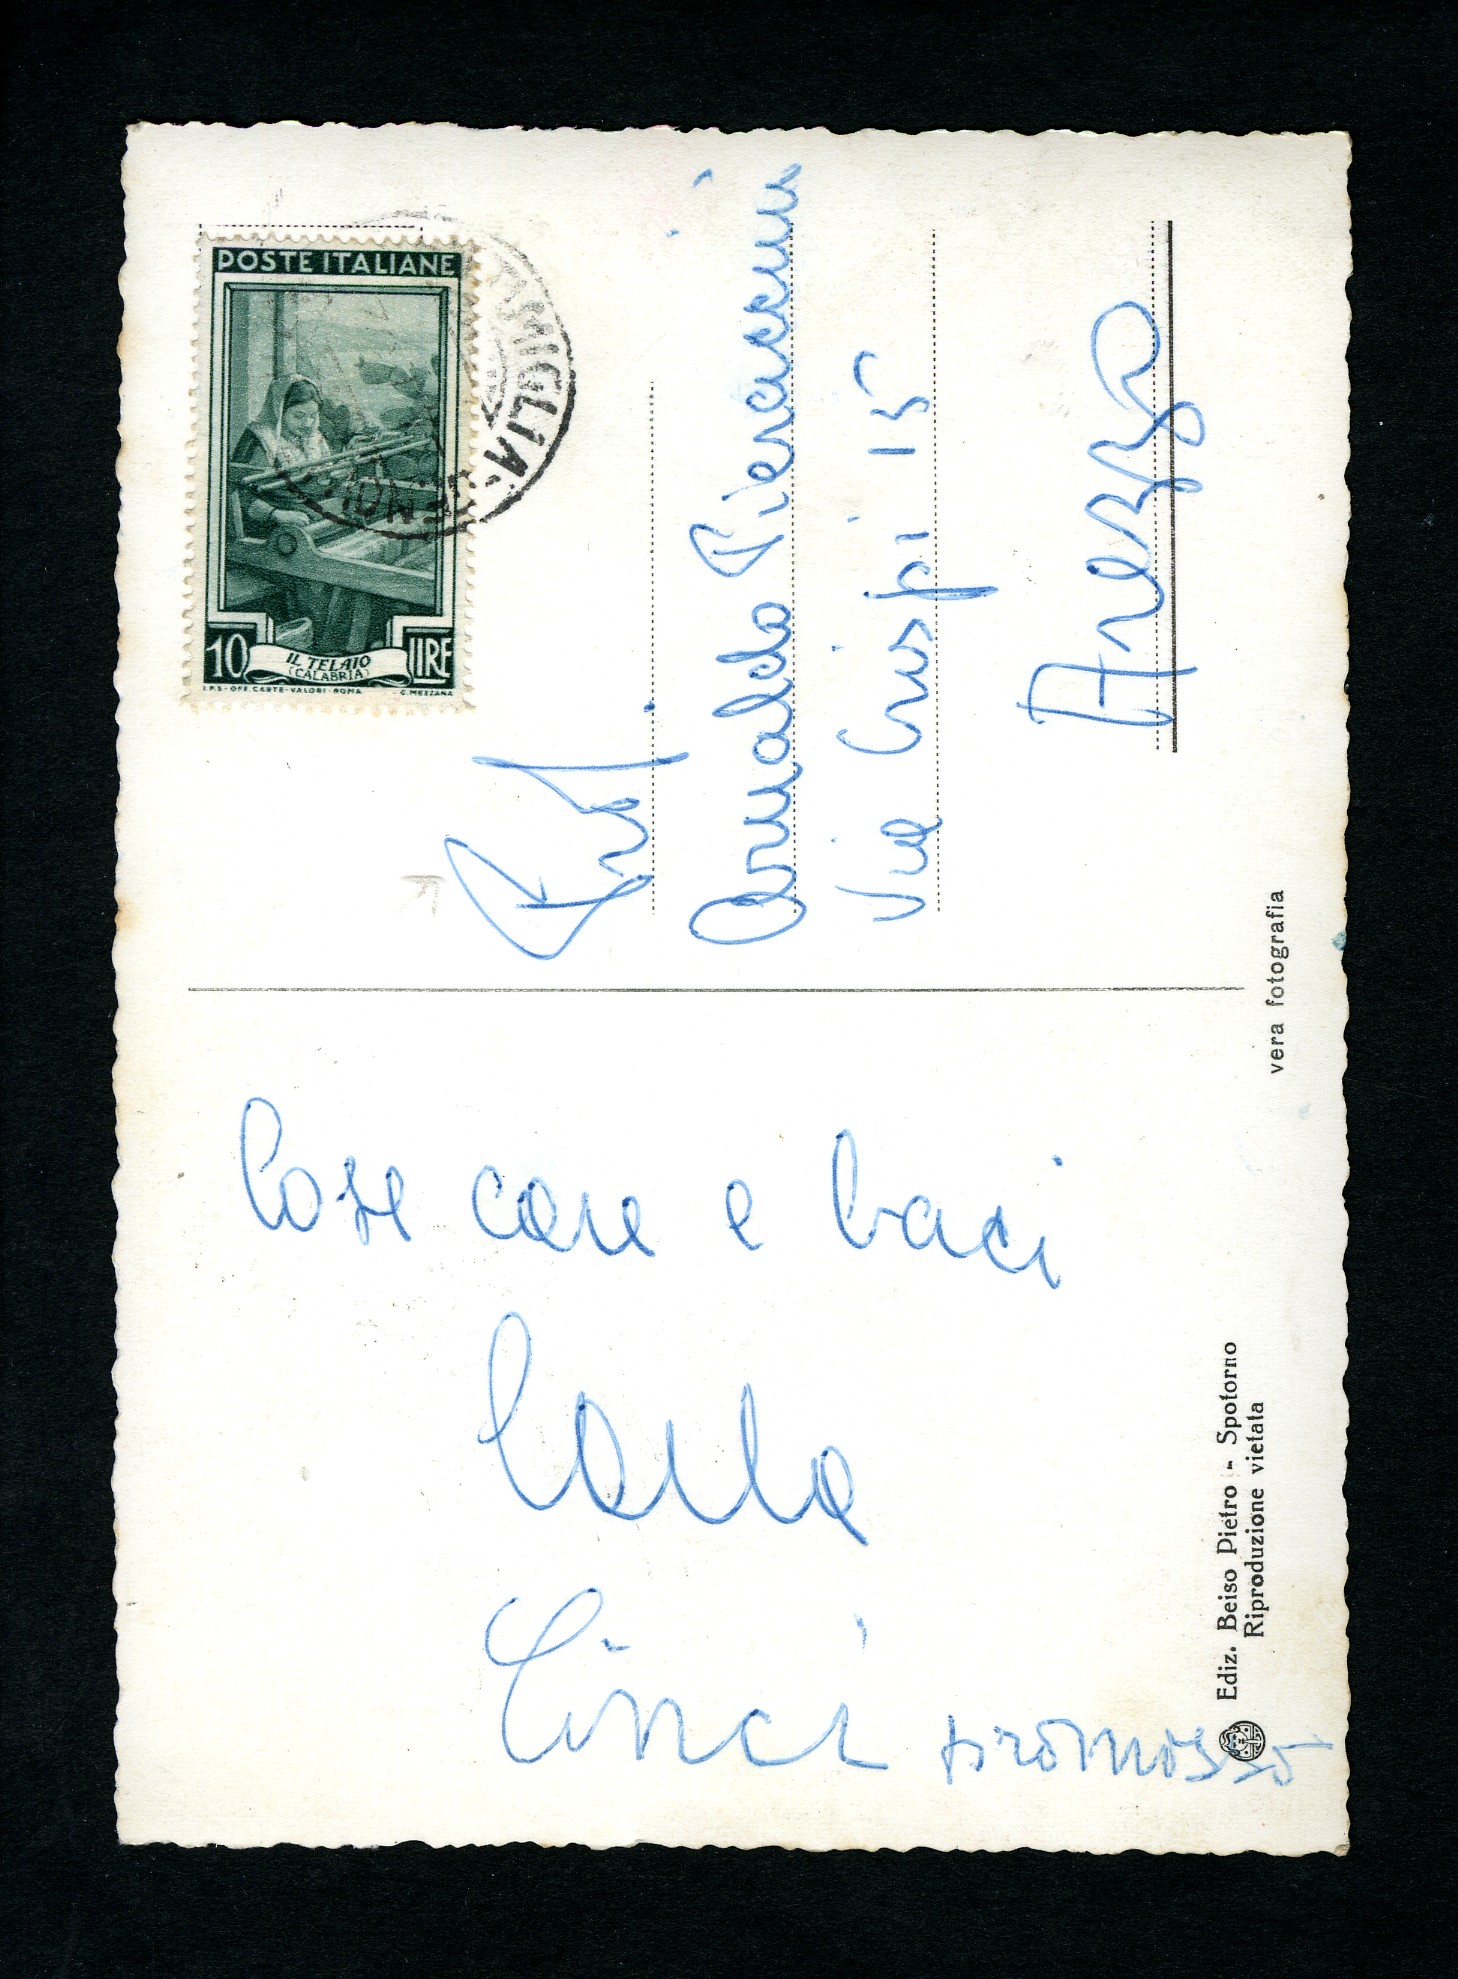 POSTE ITALIANE
10 LIRE
IL TELAIO
(CALABRIA)
I.P.S - OFF. CARTE - VALORI - ROMA G. MEZZANA
Arnaldo Pieraccini
Via Crispi 15
Arezzo
vera fotografia
Cose care e baci
Carla
Cinci promosso
Ediz. Beiso Pietro - Spotorno
Riproduzione vietata